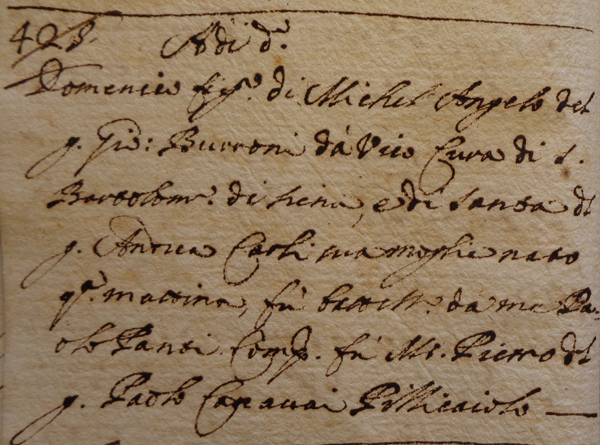 425. Adi d.º
Domenico fig.º di Michel Angelo del
q. Gio: Burroni da Vico Cura di S.
Bartolom.º di Siena, e di Santa di
q. Andrea Carli sua moglie nato
q.ª mattina, fù battezz.º da me Pa-
olo Pansi Comp. fù Mr. Pietro del
q. Paolo Capauai Pillicaiolo —